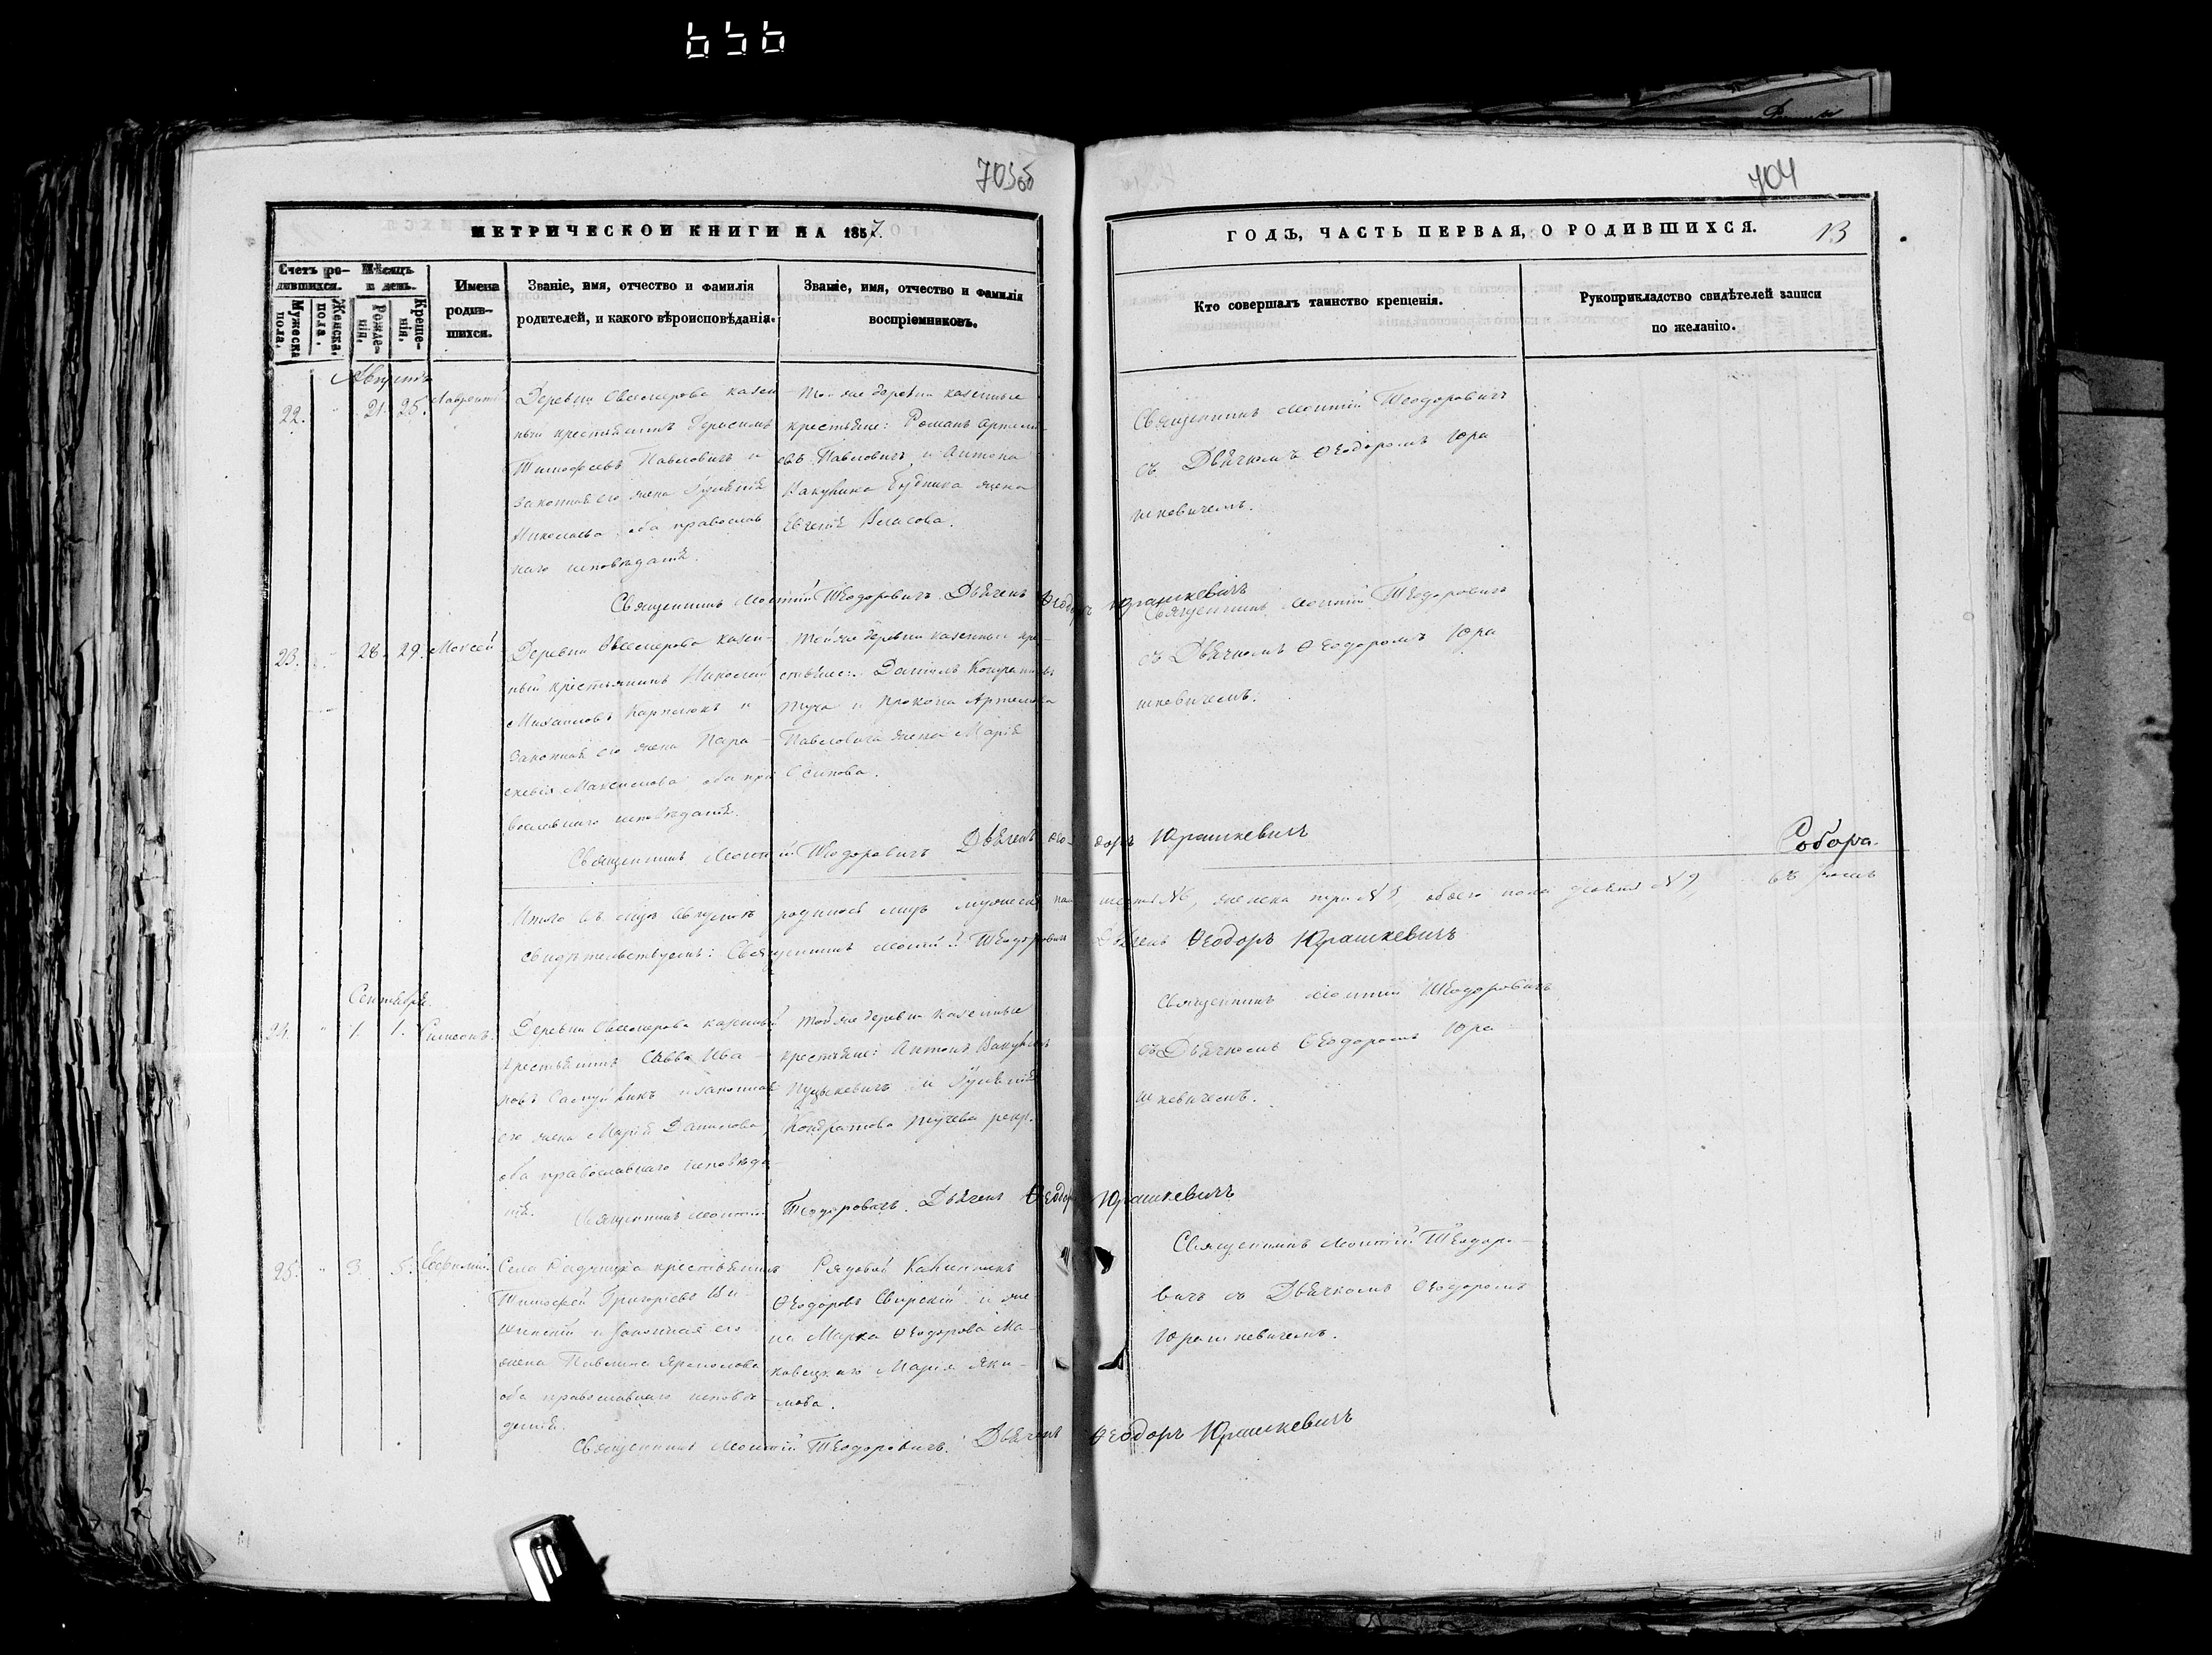 656
703об
704
МЕТРИЧЕСКОЙ КНИГИ НА 1857.
ГОДЪ, ЧАСТЬ ПЕРВАЯ, О РОДИВШИХСЯ.
13
Счетъ ро-
дившихся.
Мужеска
пола.
Женска.
пола.
Мѣсяцъ
и день.
Рожде-
нія.
Креще-
нія.
Имена
родив-
шихся.
Званіе, имя, отчество и фамилія
родителей, и какого вѣроисповѣданія.
Званіе, имя, отчество и фамилія
воспріемниковъ.
Кто совершалъ таинство крещенія.
Рукоприкладство свидѣтелей записи
по желанію.
Августъ
22. " 21. 25. Лаврентій
Деревни казен
ный крестьянинъ Герасимъ
Тимофеевъ Павловичъ и
законная его жена
Николаева, оба православ
наго исповѣданія.
Той же деревни казенные
крестьяне: Романъ Артемі-
евъ Павловичъ и Антона
жена
Евгенія Власова.
Священникъ Теодоровичъ
съ Дьячкомъ Ѳеодоромъ Юра
шкевичемъ.
Священникъ Теодоровичъ. Дьячекъ Ѳеодоръ Юрашкевичъ
23. " 28. 29. Моисей
Деревни казен-
ный крестьянинъ Николай
Михайловъ Карпюкъ и
законная его жена Пара-
скевія Максимова, оба пра
вославнаго исповѣданія.
Той же деревни казенные кре-
стьяне: Даніилъ Кондратьевъ
Туча и Прокопа Артемова
Павловича жена Марія
Осипова.
Священникъ Теодоровичъ
съ Дьячкомъ Ѳеодоромъ Юра
шкевичемъ.
Священникъ Теодоровичъ Дьячекъ Ѳеодоръ Юрашкевичъ
Собора.
Итого въ Августѣ родилось мужеска шесть №6, женска три №3, обоего пола девять №9, въ чемъ
свидѣтельствуемъ: Священникъ Теодоровичъ Дьячекъ Ѳеодоръ Юрашкевичъ
Сентябрь.
24. " 1. 1. Симеонъ.
Деревни казенный
крестьянинъ Савва Ива-
новъ и законная
его жена Марія Данилова,
оба православнаго исповѣда-
нія.
Той же деревни казенные
крестьяне: Антонъ
и
Кондратова Тучева
Священникъ Теодоровичъ
съ Дьячкомъ Ѳеодоромъ Юра
шкевичемъ.
Священникъ Теодоровичъ. Дьячекъ Ѳеодоръ Юрашкевичъ
25. " 3. 5. Евфимій.
Села крестьянинъ
Тимофей Григорьевъ Ви-
и законная его
жена Павлина
оба православнаго исповѣ-
данія.
Рядовой
Ѳеодоровъ Свирскій и же-
на Марка Ѳеодорова Ма-
ковецкаго Марія Яки-
мова.
Священникъ Теодоро-
вичъ съ Дьячкомъ Ѳеодоромъ
Юрашкевичемъ.
Священникъ Теодоровичъ. Дьячекъ Ѳеодоръ Юрашкевичъ